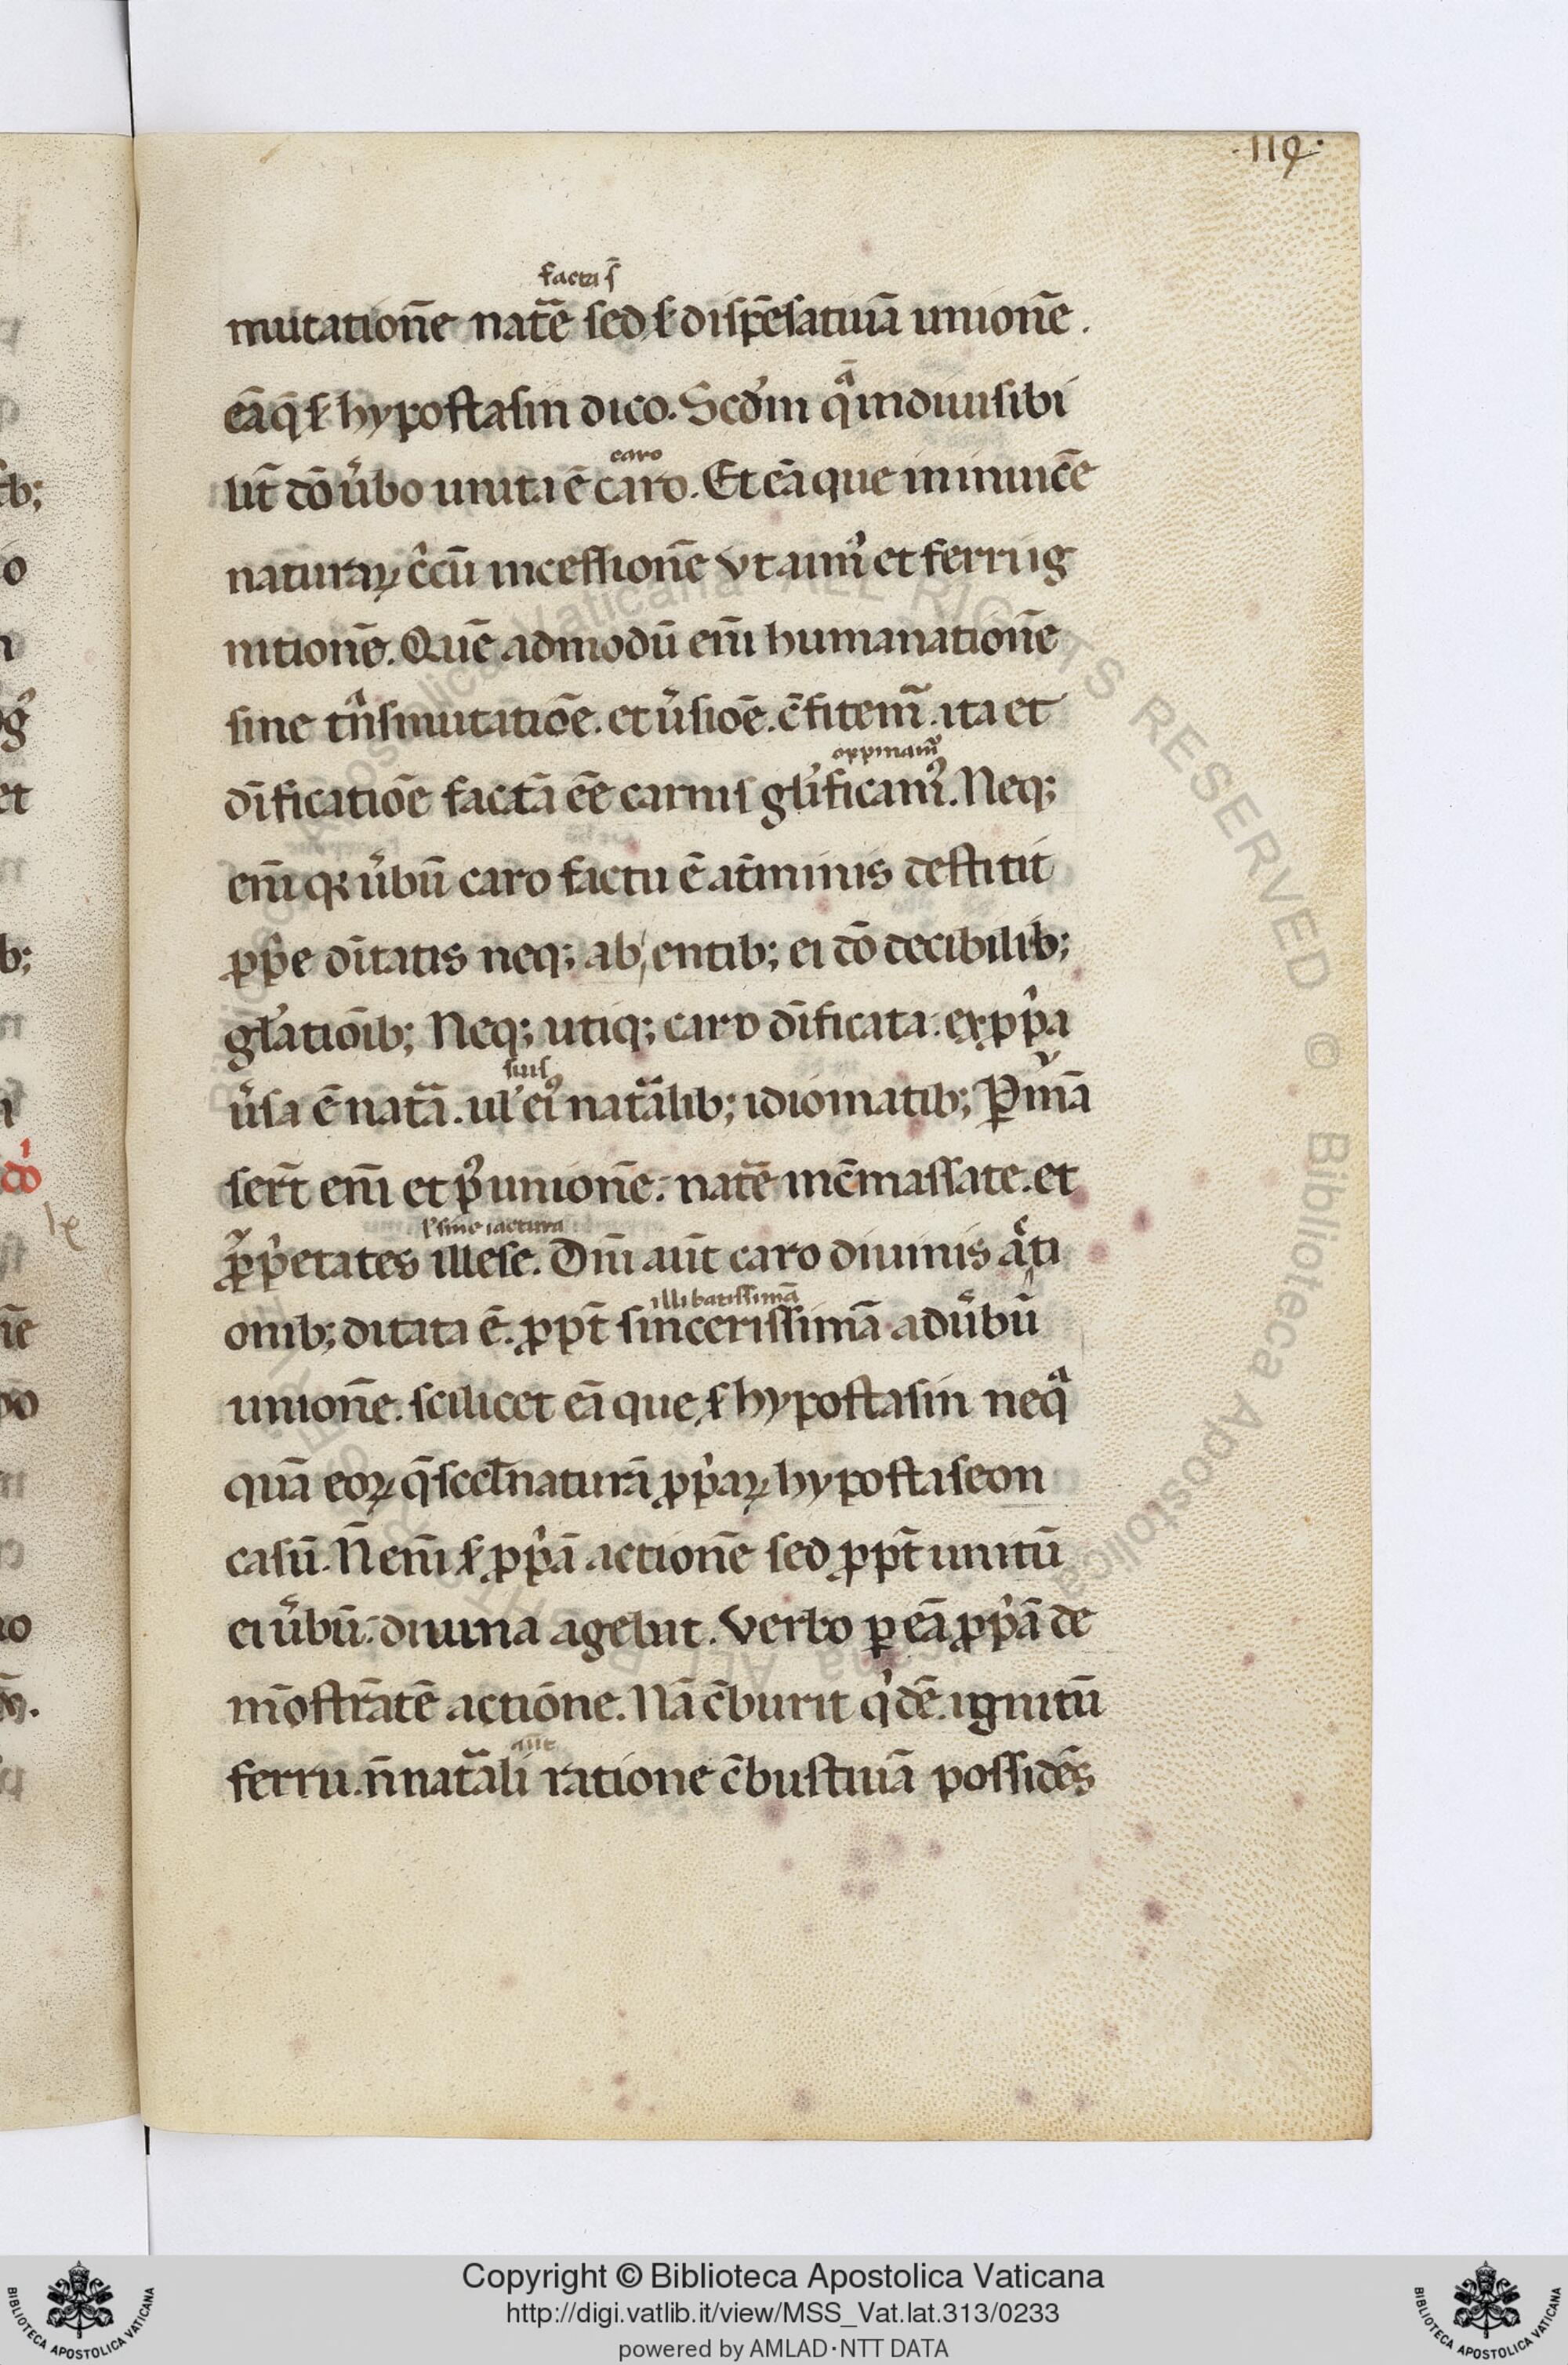 ·119·
facta ẜ̄
mutationē natē sed ẜ disp̄ēsatiuā unionē .
eāq̄ ẜ hypostasin dico. Scd̓m qͣ indiuisibi
lit̄ dō u̓bo unita ē caro. Et eā que in inuicē
caro
naturaꝝ c̓cū incessionē vt aiim᾿ et ferri ig
nitionē. Quē admodū eni̅ humanationē
sine tn̓smutatiōe. et u̓siōe. c̄fitem̄. ita et
oppinam᾿
di̅ficatiōe factā ee̅ carnis gl̓ificam᾿. Neq;
eni̅ qꝛ u̓bū caro factu ē at̄minis destitit
ꝓp̓e di̅tatis neq; ab entib; ei dō decibilib;
gl̓atiōib; Neq; utiq; caro di̅ficata. ex ꝓp̓a
suis
u̓sa ē natā. ul̓ ei᾿ natālib; idiomatib; Ꝑmā
ser̄t eni̅ et p᾿ unionē. natē inc̄massate. et
ꝉ sine iactura
ꝓp̓etates illese. Dni̅ aut̄ caro diuinis aͨti
illibatissimā
onib; ditata ē. ꝓpt̄ sincerissimā ad u̓bū
unionē. scilicet eā que ẜ hypostasin neqͣ
quā eoꝝ q̄ scd̄ naturā ꝓp̓aꝝ hypostaseon
casū. N̄ eni̅ ẜ ꝓp̓ā actionē sed ꝓpt̄ unitū
ei u̓bū. diuina agebat. Verbo ꝑ eā ꝓp̓ā de
mōstrātē actiōne. Nā c̄burit q̓dē. ignitū
aut
ferru. n̄ natāli ratione c̄bustiuā possidēs
Copyright © Biblioteca Apostolica Vaticana
http://digi.vatlib.it/view/MSS_Vat.lat.313/0233
powered by AMLAD·NTT DATA
BIBLIOTECA APOSTOLICA VATICANA
BIBLIOTECA APOSTOLICA VATICANA